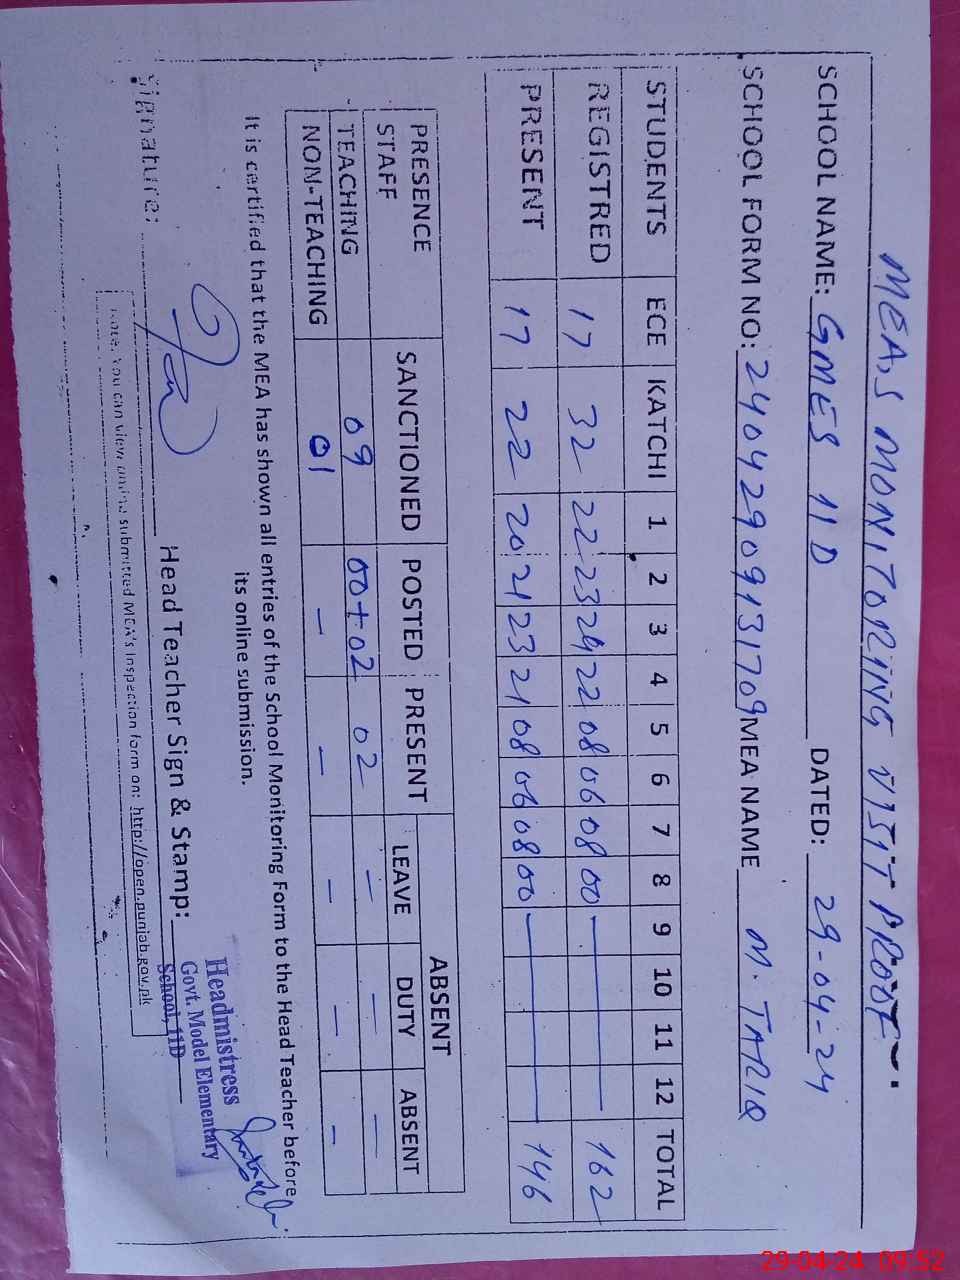 MEA,S MONITORING VISIT PROOF
SCHOOL NAME: GMES 11 D DATED: 29-04-24
SCHOOL FORM NO: 24042909131709 MEA NAME M. TARIQ
STUDENTS ECE KATCHI 1 2 3 4 5 6 7 8 9 10 11 12 TOTAL
REGISTRED 17 32 22 23 24 22 08 06 08 00 — 162
PRESENT 17 22 20 21 23 21 08 06 08 00 — 146
PRESENCE SANCTIONED POSTED PRESENT ABSENT
STAFF LEAVE DUTY ABSENT
TEACHING 09 00+02 02 — — —
NON-TEACHING 01 — — — — —
It is certified that the MEA has shown all entries of the School Monitoring Form to the Head Teacher before
its online submission.
Signature: Head Teacher Sign & Stamp:
Headmistress
Govt. Model Elementary
School, 11D
Note: You can view online submitted MEA's Inspection form on: http://open.punjab.gov.pk
29-04-24 09:52